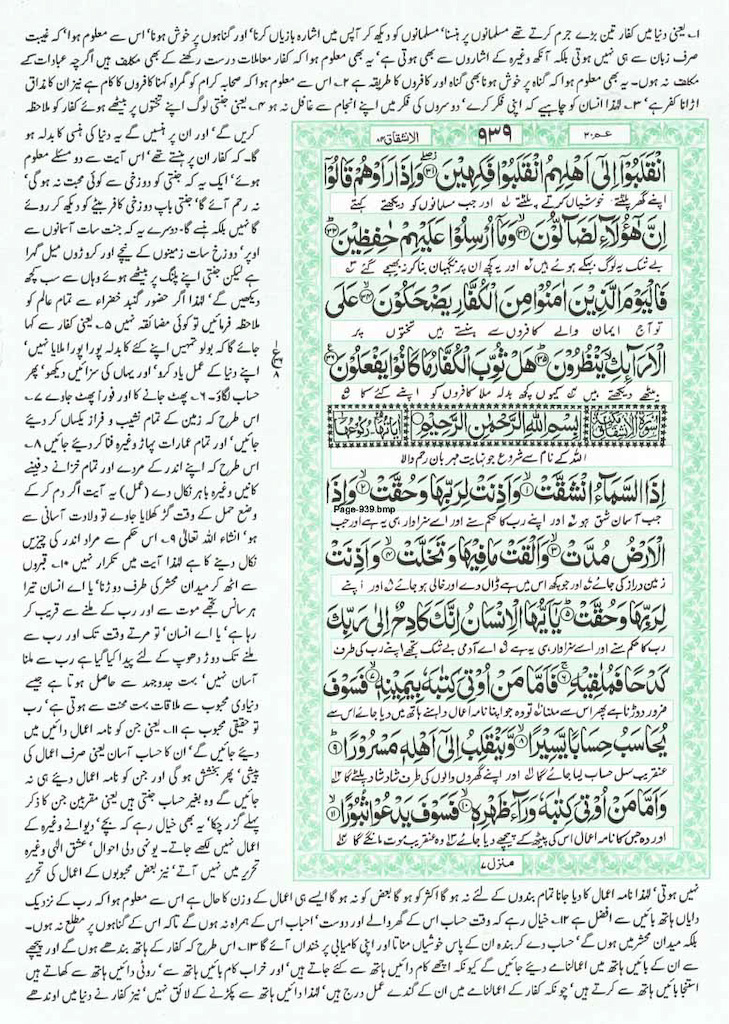 ۱۔ یعنی دنیا میں کفار تین بڑے جرم کرتے تھے مسلمانوں پر ہنسنا، مسلمانوں کو دیکھ کر آپس میں اشارہ بازیاں کرنا، اور گناہوں پر خوش ہونا، اس سے معلوم ہوا، کہ غیبت
صرف زبان سے ہی نہیں ہوتی بلکہ آنکھ وغیرہ کے اشاروں سے بھی ہوتی ہے، یہ بھی معلوم ہوا کہ کفار معاملات درست رکھنے کے بھی مکلف ہیں اگرچہ عبادات کے
مکلف نہ ہوں۔ یہ بھی معلوم ہوا کہ گناہ پر خوش ہونا بھی گناہ اور کافروں کا طریقہ ہے ۲۔ اس سے معلوم ہوا کہ صحابہ کرام کو گمراہ کہنا کافروں کا کام ہے نیز ان کا مذاق
اڑانا کفر ہے، ۳۔ لہذا انسان کو چاہیے کہ اپنی فکر کرے، دوسروں کی فکر میں اپنے انجام سے غافل نہ ہو ۴۔ یعنی جنتی لوگ اپنے تختوں پر بیٹھے ہوئے کفار کو ملاحظہ
کریں گے، اور ان پر ہنسیں گے یہ دنیا کی ہنسی کا بدلہ ہو
گا۔ کہ کفار ان پر ہنستے تھے، اس آیت سے دو مسئلے معلوم
ہوئے، ایک یہ کہ جنتی کو دوزخی سے کوئی محبت نہ ہو گی،
نہ رحم آئے گا، جنتی باپ دوزخی کافر بیٹے کو دیکھ کر روئے
گا نہیں بلکہ ہنسے گا۔ دوسرے یہ کہ جنت سات آسمانوں سے
اوپر، دوزخ سات زمینوں کے نیچے اور کروڑوں میل گہرا
ہے لیکن جنتی اپنے پلنگ پر بیٹھے ہوئے وہاں سے سب کچھ
دیکھیں گے، لہذا اگر حضور گنبد خضراء سے تمام عالم کو
ملاحظہ فرمائیں تو کوئی مضائقہ نہیں ۵۔ یعنی کفار سے کہا
جائے گا کہ بولو تمہیں اپنے کئے کا بدلہ پورا پورا ملا یا نہیں،
اپنے دنیا کے عمل یاد کرو، اور یہاں کی سزائیں دیکھو، پھر
حساب لگاؤ۔ ۶۔ پھٹ جانے کا اور فوراً پھٹ جاوے ۷۔
اس طرح کہ زمین کے تمام نشیب و فراز یکساں کر دیئے
جائیں، اور تمام عمارات پہاڑ وغیرہ فنا کر دیئے جائیں ۸۔
اس طرح کہ اپنے اندر کے مردے اور تمام خزانے دفینے
کانیں وغیرہ باہر نکال دے (عمل) یہ آیت اگر دم کر کے
وضع حمل کے وقت گڑ کھلایا جاوے تو ولادت آسانی سے
ہو، انشاء اللہ تعالیٰ ۹۔ اس حکم سے مراد اندر کی چیزیں
نکال دینے کا ہے لہذا آیت میں تکرار نہیں ۱۰۔ قبروں
سے اٹھ کر میدان محشر کی طرف دوڑنا، یا اے انسان تیرا
ہر سانس تجھے موت سے اور رب کے ملنے سے قریب کر
رہا ہے، یا اے انسان، تو مرتے وقت تک اور رب سے
ملنے تک دوڑ دھوپ کے لئے پیدا کیا گیا ہے رب سے ملنا
آسان نہیں، بہت جدوجہد سے حاصل ہوتا ہے جیسے
دنیاوی محبوب سے ملاقات بہت محنت سے ہوتی ہے، رب
تو حقیقی محبوب ہے ۱۱۔ یعنی جن کو نامہ اعمال دائیں میں
دیئے جائیں گے، ان کا حساب آسان یعنی صرف اعمال کی
پیشی، پھر بخشش ہو گی اور جن کو نامہ اعمال دیئے ہی نہ
جائیں گے وہ بغیر حساب جنتی ہیں یعنی مقربین جن کا ذکر
پہلے گزر چکا، یہ بھی خیال رہے کہ بچے، دیوانے وغیرہ کے
اعمال نہیں لکھے جاتے۔ یونہی دلی احوال، عشق الٰہی وغیرہ
تحریر میں نہیں آتے، نیز بعض محبوبوں کے اعمال کی تحریر
عمّ ۳۰
۹۳۹
الانشقاق ۸۴
انْقَلَبُوْۤا اِلٰۤى اَهْلِهِمُ انْقَلَبُوْا فَكِهِیْنَ ۳۱ وَ اِذَا رَاَوْهُمْ قَالُوْۤا
اپنے گھر پلٹتے خوشیاں کرتے پلٹتے ۱ اور جب مسلمانوں کو دیکھتے کہتے
اِنَّ هٰۤؤُلَآءِ لَضَآلُّوْنَ ۳۲ وَ مَاۤ اُرْسِلُوْا عَلَیْهِمْ حٰفِظِیْنَ ۳۳
بے شک یہ لوگ بہکے ہوئے ہیں ۲ اور یہ کچھ ان پر نگہبان بنا کر نہ بھیجے گئے ۳
فَالْیَوْمَ الَّذِیْنَ اٰمَنُوْا مِنَ الْكُفَّارِ یَضْحَكُوْنَ ۳۴ عَلَى
تو آج ایمان والے کافروں سے ہنستے ہیں تختوں پر
الْاَرَآىٕكِ یَنْظُرُوْنَ ۳۵ هَلْ ثُوِّبَ الْكُفَّارُ مَا كَانُوْا یَفْعَلُوْنَ ۳۶
بیٹھے دیکھتے ہیں ۴ کیوں کچھ بدلہ ملا کافروں کو اپنے کئے کا ۵
سورۃ الانشقاق بِسْمِ اللّٰهِ الرَّحْمٰنِ الرَّحِیْمِ
اللہ کے نام سے شروع جو نہایت مہربان رحم والا
اِذَا السَّمَآءُ انْشَقَّتْ ۱ وَ اَذِنَتْ لِرَبِّهَا وَ حُقَّتْ ۲ وَ اِذَا
Page-939.bmp
جب آسمان شق ہو ۶ اور اپنے رب کا حکم سنے اور اسے سزاوار ہی یہ ہے اور جب
الْاَرْضُ مُدَّتْ ۳ وَ اَلْقَتْ مَا فِیْهَا وَ تَخَلَّتْ ۴ وَ اَذِنَتْ
زمین دراز کی جائے ۷ اور جو کچھ اس میں ہے ڈال دے اور خالی ہو جائے ۸ اور اپنے
لِرَبِّهَا وَ حُقَّتْ ۵ یٰۤاَیُّهَا الْاِنْسَانُ اِنَّكَ كَادِحٌ اِلٰى رَبِّكَ
رب کا حکم سنے اور اسے سزاوار ہی یہ ہے ۹ اے آدمی بے شک تجھے اپنے رب کی طرف
كَدْحًا فَمُلٰقِیْهِ ۶ فَاَمَّا مَنْ اُوْتِیَ كِتٰبَهٗ بِیَمِیْنِهٖ ۷ فَسَوْفَ
ضرور دوڑنا ہے پھر اس سے ملنا ۱۰ تو وہ جو اپنا نامہ اعمال داہنے ہاتھ میں دیا جائے اس سے
یُحَاسَبُ حِسَابًا یَّسِیْرًا ۸ وَّ یَنْقَلِبُ اِلٰۤى اَهْلِهٖ مَسْرُوْرًا ۹
عنقریب سہل حساب لیا جائے گا ۱۱ اور اپنے گھر والوں کی طرف شاد شاد پلٹے گا ۱۲
وَ اَمَّا مَنْ اُوْتِیَ كِتٰبَهٗ وَرَآءَ ظَهْرِهٖ ۱۰ فَسَوْفَ یَدْعُوْا ثُبُوْرًا ۱۱
اور وہ جس کا نامہ اعمال اس کی پیٹھ کے پیچھے دیا جائے ۱۳ وہ عنقریب موت مانگے گا ۱۴
منزل ۷
نہیں ہوتی، لہذا نامہ اعمال کا دیا جانا تمام بندوں کے لئے نہ ہو گا اکثر کو ہو گا بعض کو نہ ہو گا ایسے ہی اعمال کے وزن کا حال ہے اس سے معلوم ہوا کہ رب کے نزدیک
دایاں ہاتھ بائیں سے افضل ہے ۱۲۔ خیال رہے کہ وقت حساب اس کے گھر والے اور دوست، احباب اس کے ہمراہ نہ ہوں گے تاکہ اس کے گناہوں پر مطلع نہ ہوں۔
بلکہ میدان محشر میں ہوں گے، حساب دے کر بندہ ان کے پاس خوشیاں مناتا اور اپنی کامیابی پر خنداں آئے گا ۱۳۔ اس طرح کہ کفار کے ہاتھ بندھے ہوں گے اور پیچھے
سے ان کے بائیں ہاتھ میں اعمالنامے دیئے جائیں گے کیونکہ اچھے کام دائیں ہاتھ سے کئے جاتے ہیں، اور خراب کام بائیں ہاتھ سے، روٹی دائیں ہاتھ سے کھاتے ہیں
استنجا بائیں ہاتھ سے کرتے ہیں، چونکہ کفار کے اعمالنامے میں ان کے گندے عمل درج ہیں، لہذا دائیں ہاتھ سے پکڑنے کے لائق نہیں، نیز کفار نے دنیا میں اوندھے